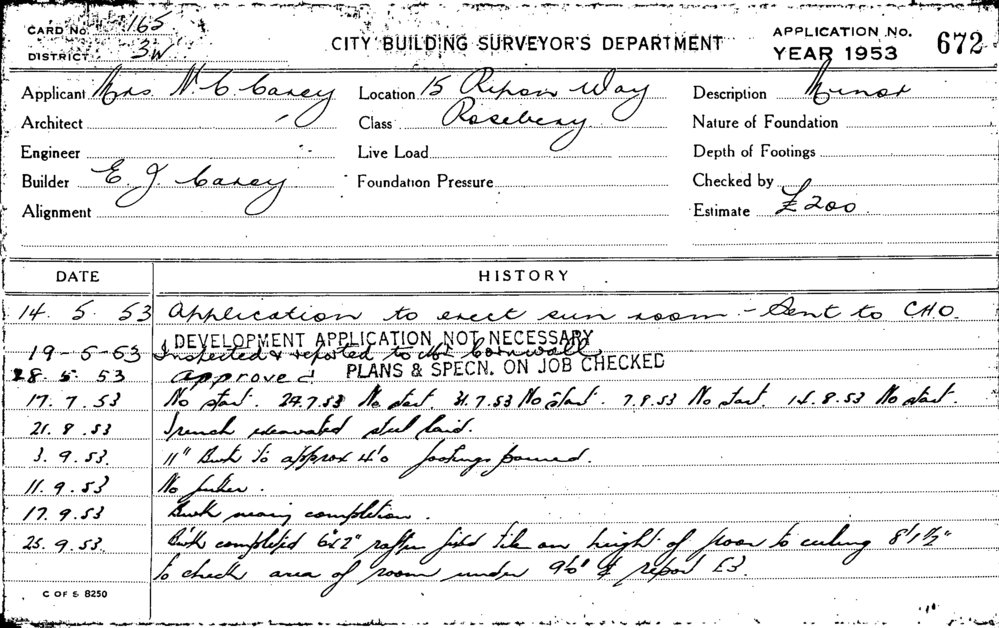 CARD No. 165
DISTRICT 3W
CITY BUILDING SURVEYOR'S DEPARTMENT
APPLICATION No. 672
YEAR 1953
Applicant Mrs. N. C. Carey Location 15 Ripon Way Description Minor
Architect Class Rosebery Nature of Foundation
Engineer Live Load Depth of Footings
Builder E. J. Carey Foundation Pressure Checked by
Alignment Estimate £200
DATE HISTORY
14. 5. 53 Application to erect sun room - Sent to CHO.
DEVELOPMENT APPLICATION NOT NECESSARY
19-5-53 Inspected & reported to Mr Cornwall
28. 5. 53 approved PLANS & SPECN. ON JOB CHECKED
17. 7. 53 No start. 24.7.53 No start. 31.7.53 No start. 7.8.53 No start. 14.8.53 No start.
21. 8. 53 Trench excavated steel laid.
3. 9. 53. 11" Bwk to approx 4'0 footings poured.
11. 9. 53 No further.
17. 9. 53 Bwk nearing completion.
25. 9. 53. Bwk completed 6x2" rafters fixed tile on height of floor to ceiling 8'1½"
to check area of room under 9'6" & report £3.
C OF S 8250